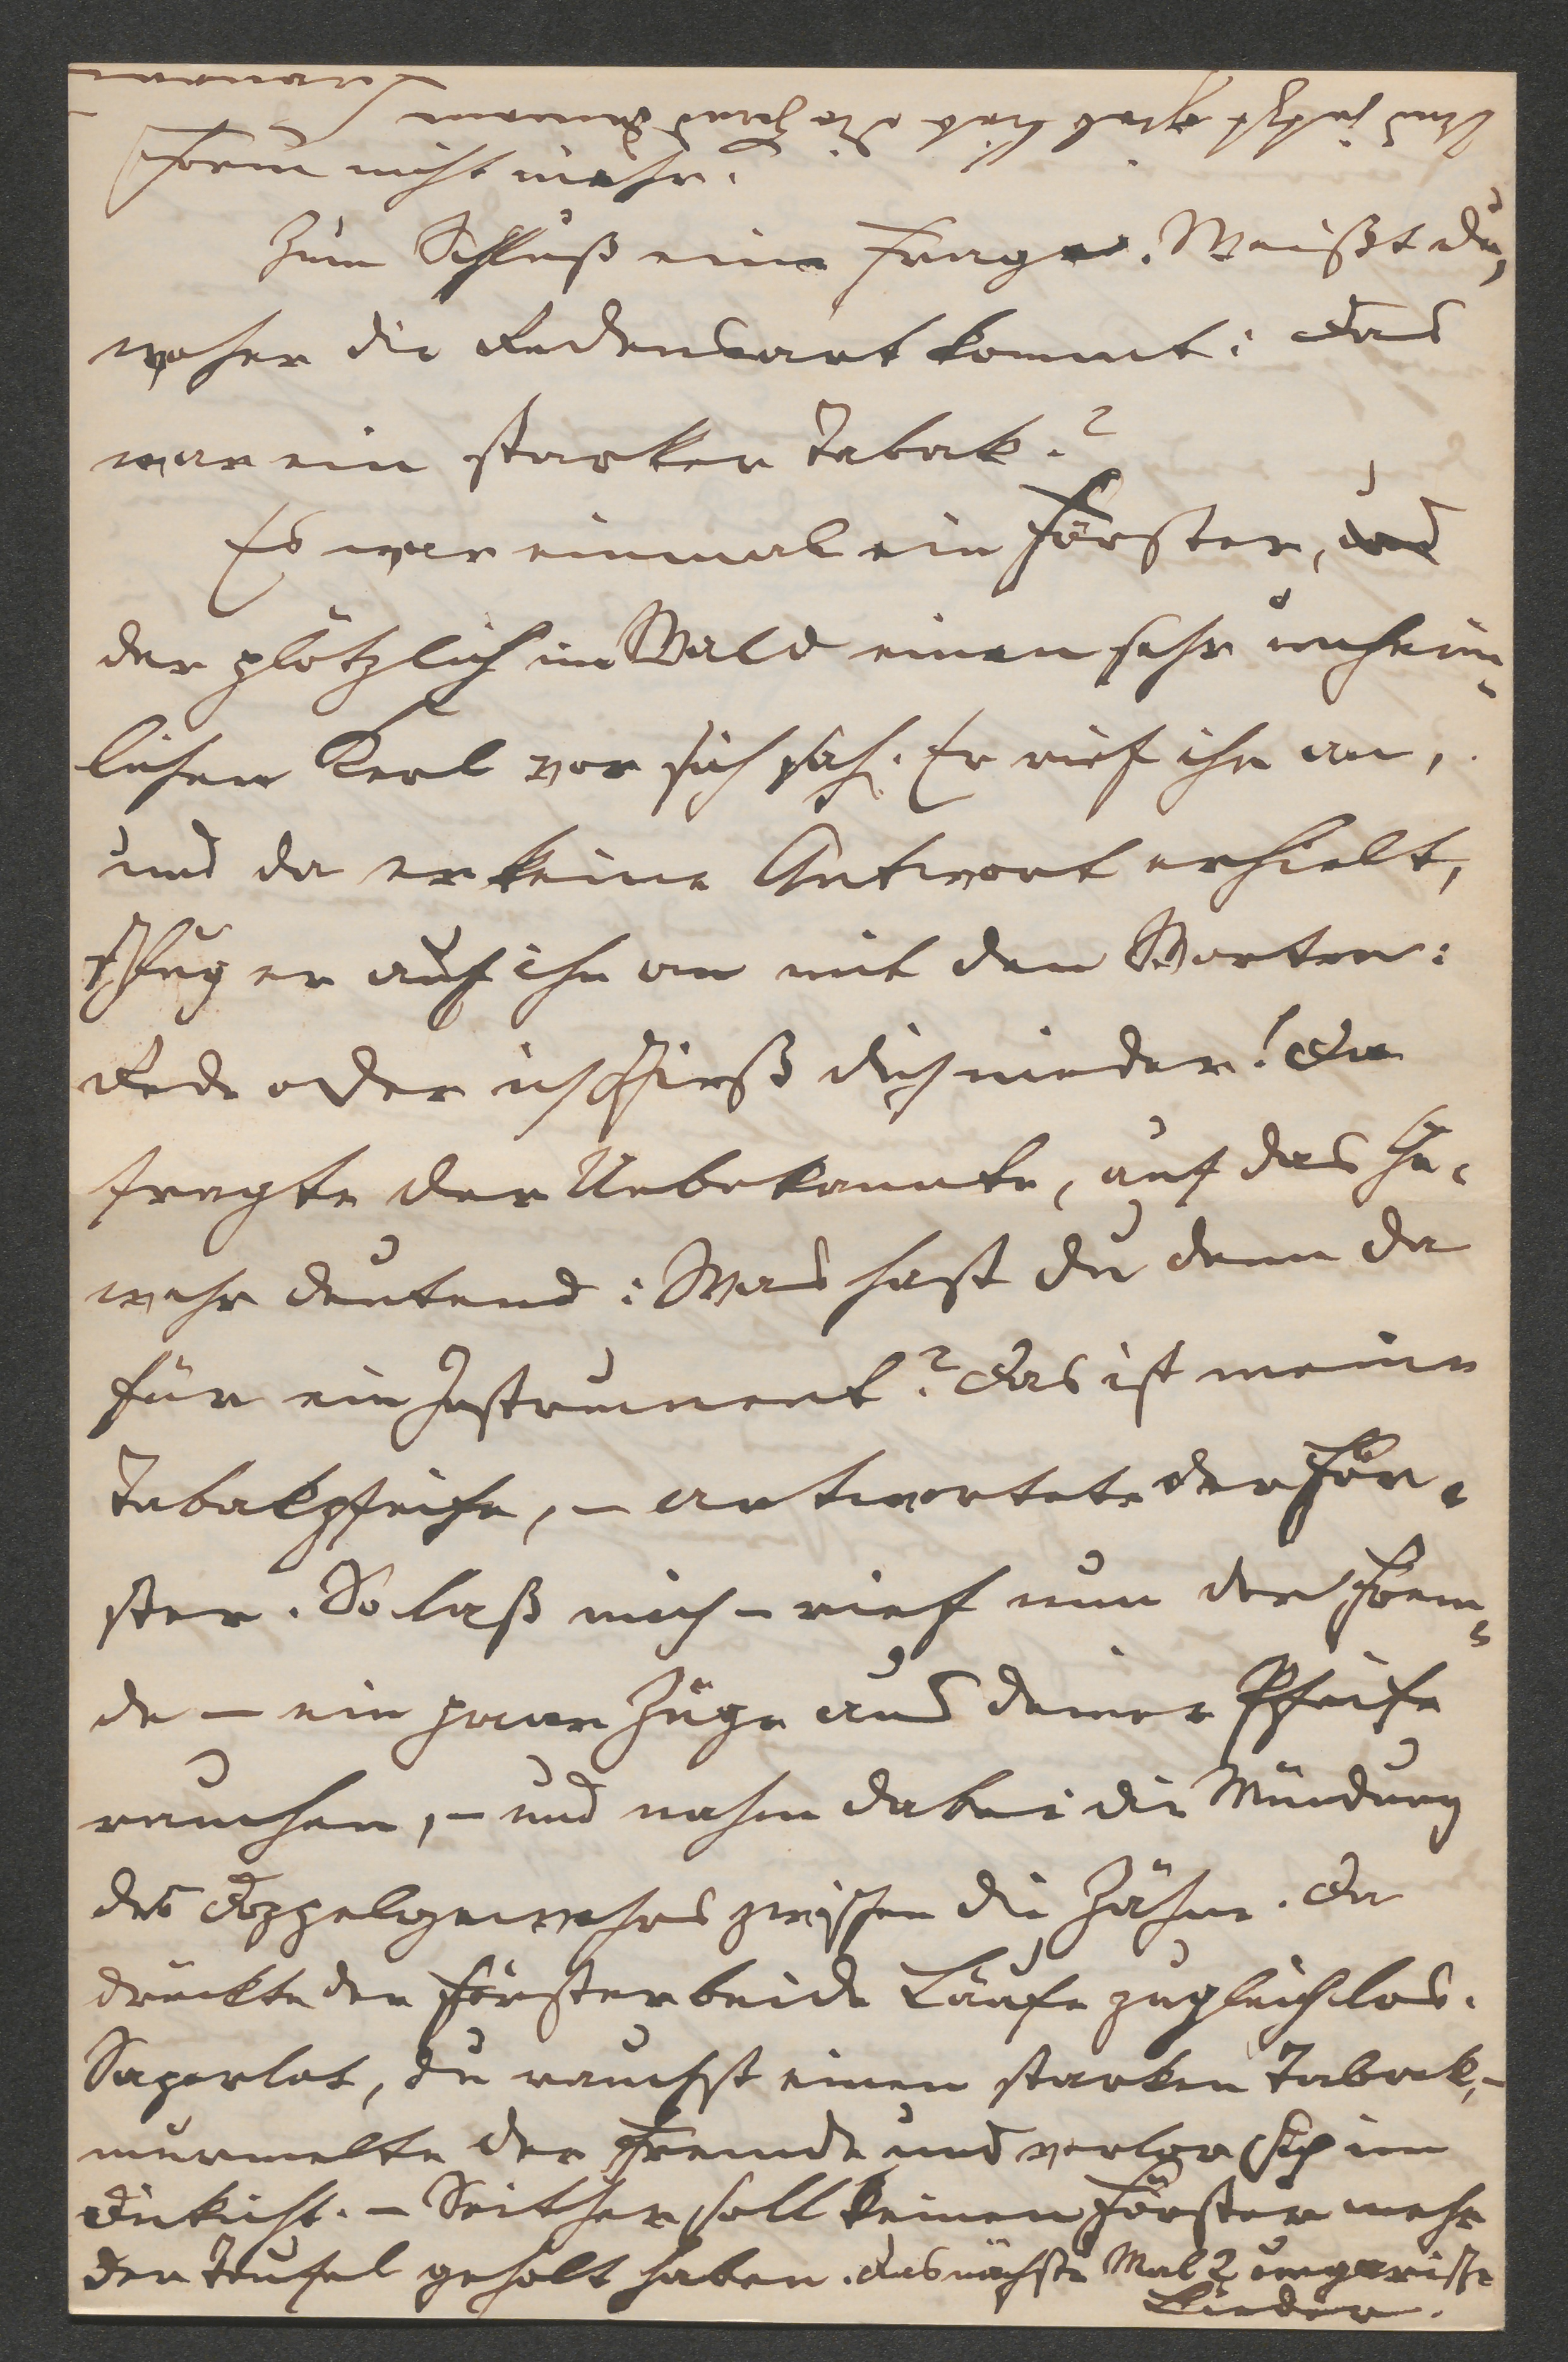 Form nicht mehr.
Zum Schluß eine Frage. Weißt du,
woher die Redensart kommt: Das
war ein starker Tabak?
Es war einmal ein Förster, und
der plötzlich im Wald einen sehr unheim-
lichen Kerl vor sich sah. Er rief ihn an,
und da er keine Antwort erhielt,
schlug er auf ihn an mit den Worten:
Rede oder ich schieß dich nieder! Da
fragte der Unbekannte, auf das Ge-
wehr deutend: Was hast du denn da
für ein Instrument? Das ist meine
Tabakpfeife, – antwortete der För-
ster. So laß mich – rief nun der Frem-
de – ein paar Züge aus deiner Pfeife
rauchen, – und nahm dabei die Mündung
des Doppelgewehrs zwischen die Zähne. Da
drückte der Förster beide Läufe zugleich los.
Saperlot, du rauchst einen starken Tabak, –
murmelte der Fremde und verlor sich im
Dickicht. – Seither soll keinen Förster mehr
der Teufel geholt haben. Das nächste Mal 2 ungarische
Lieder.
Und jetzt